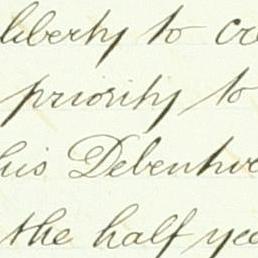 liberty to cre
priority to
his Debenture
the half yea